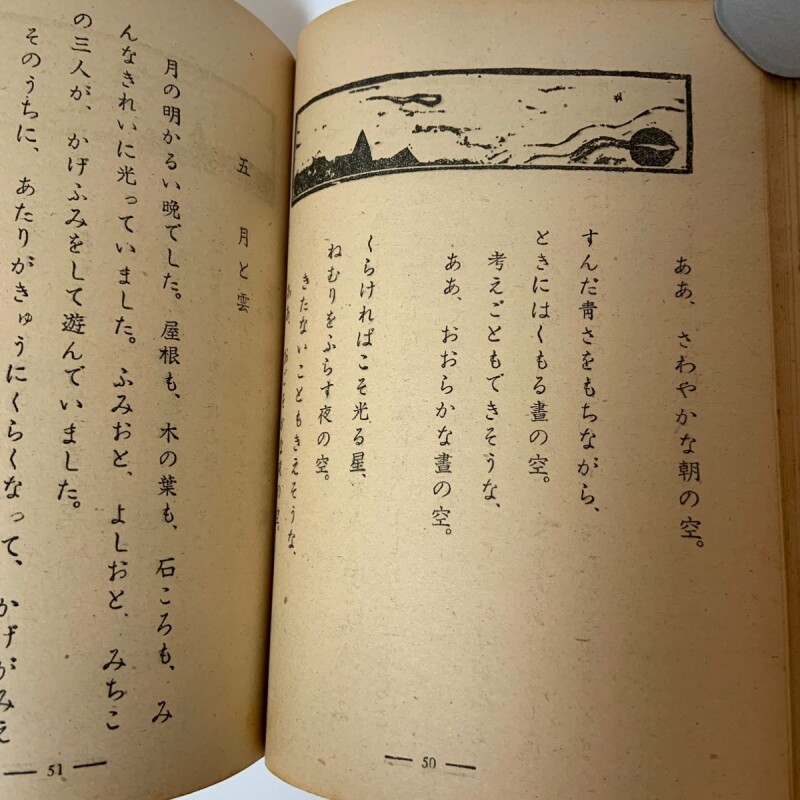 ああ、さわやかな朝の空。
すんだ靑さをもちながら、
ときにはくもる晝の空。
考えごともできそうな、
ああ、おおらかな晝の空。
くらければこそ光る星、
ねむりをふらす夜の空。
きたないこともきえそうな、
の空。
— 50 —
五 月と雲
月の明かるい晩でした。屋根も、木の葉も、石ころも、み
んなきれいに光っていました。ふみおと、よしおと、みちこ
の三人が、かげふみをして遊んでいました。
そのうちに、あたりがきゅうにくらくなって、かげがみえ
— 51 —